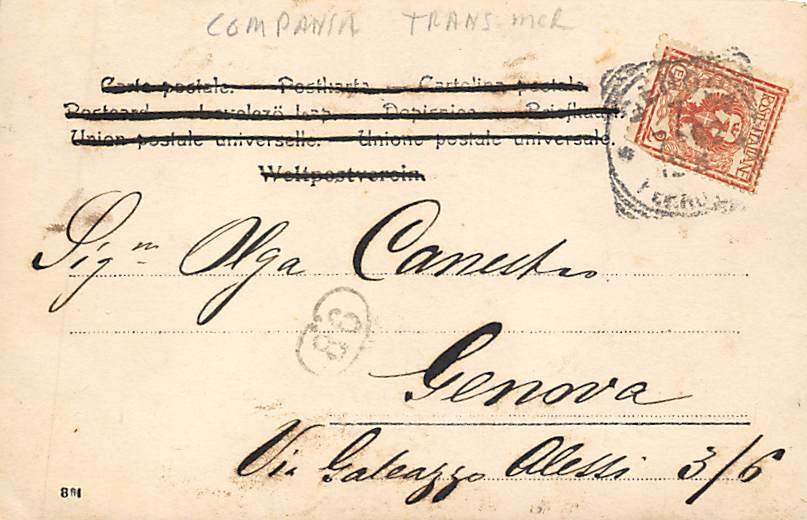 COMPANIA TRANS MER
Carte postale. Postkarte. Cartolina postale
Postcard Levelező-Lap. Dopisnice Briefkaart.
Union postale universelle. Unione postale universale.
Weltpostverein.
POSTE ITALIANE
Sig.na Olga Canestro
86
Genova
Via Galeazzo Alessi 3/6
801